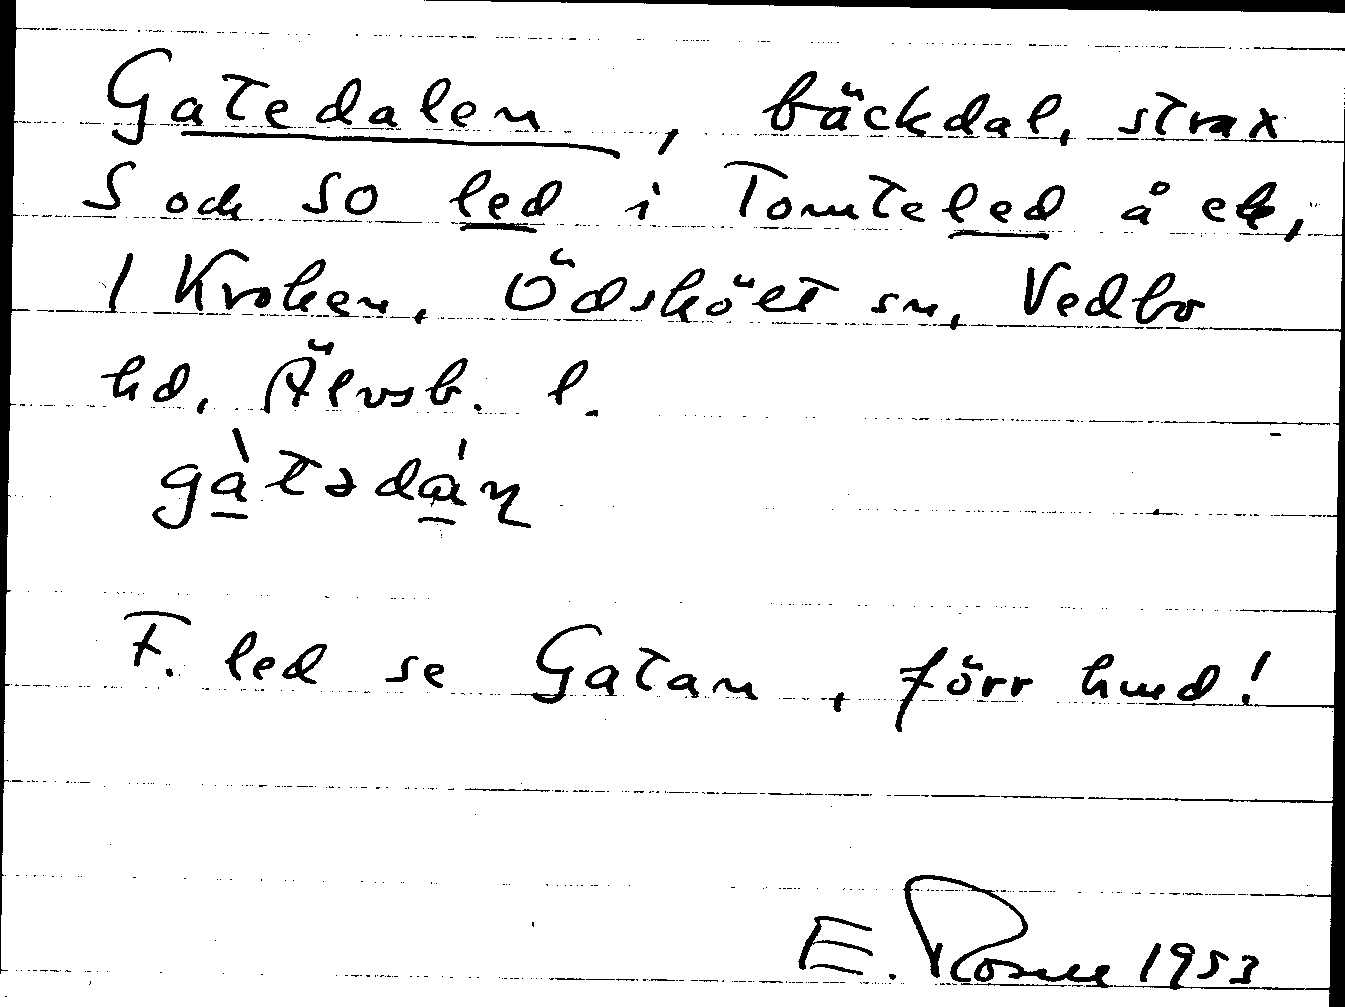 Gatedalen, bäckdal, strax
S och SO led i Tomteled å ek,
1 Kroken, Ödskölt sn, Vedbo
hd, Älvsb. l.
gàtədáɳ
F. led se Gatan, förr hmd!
E. Rosell 1953